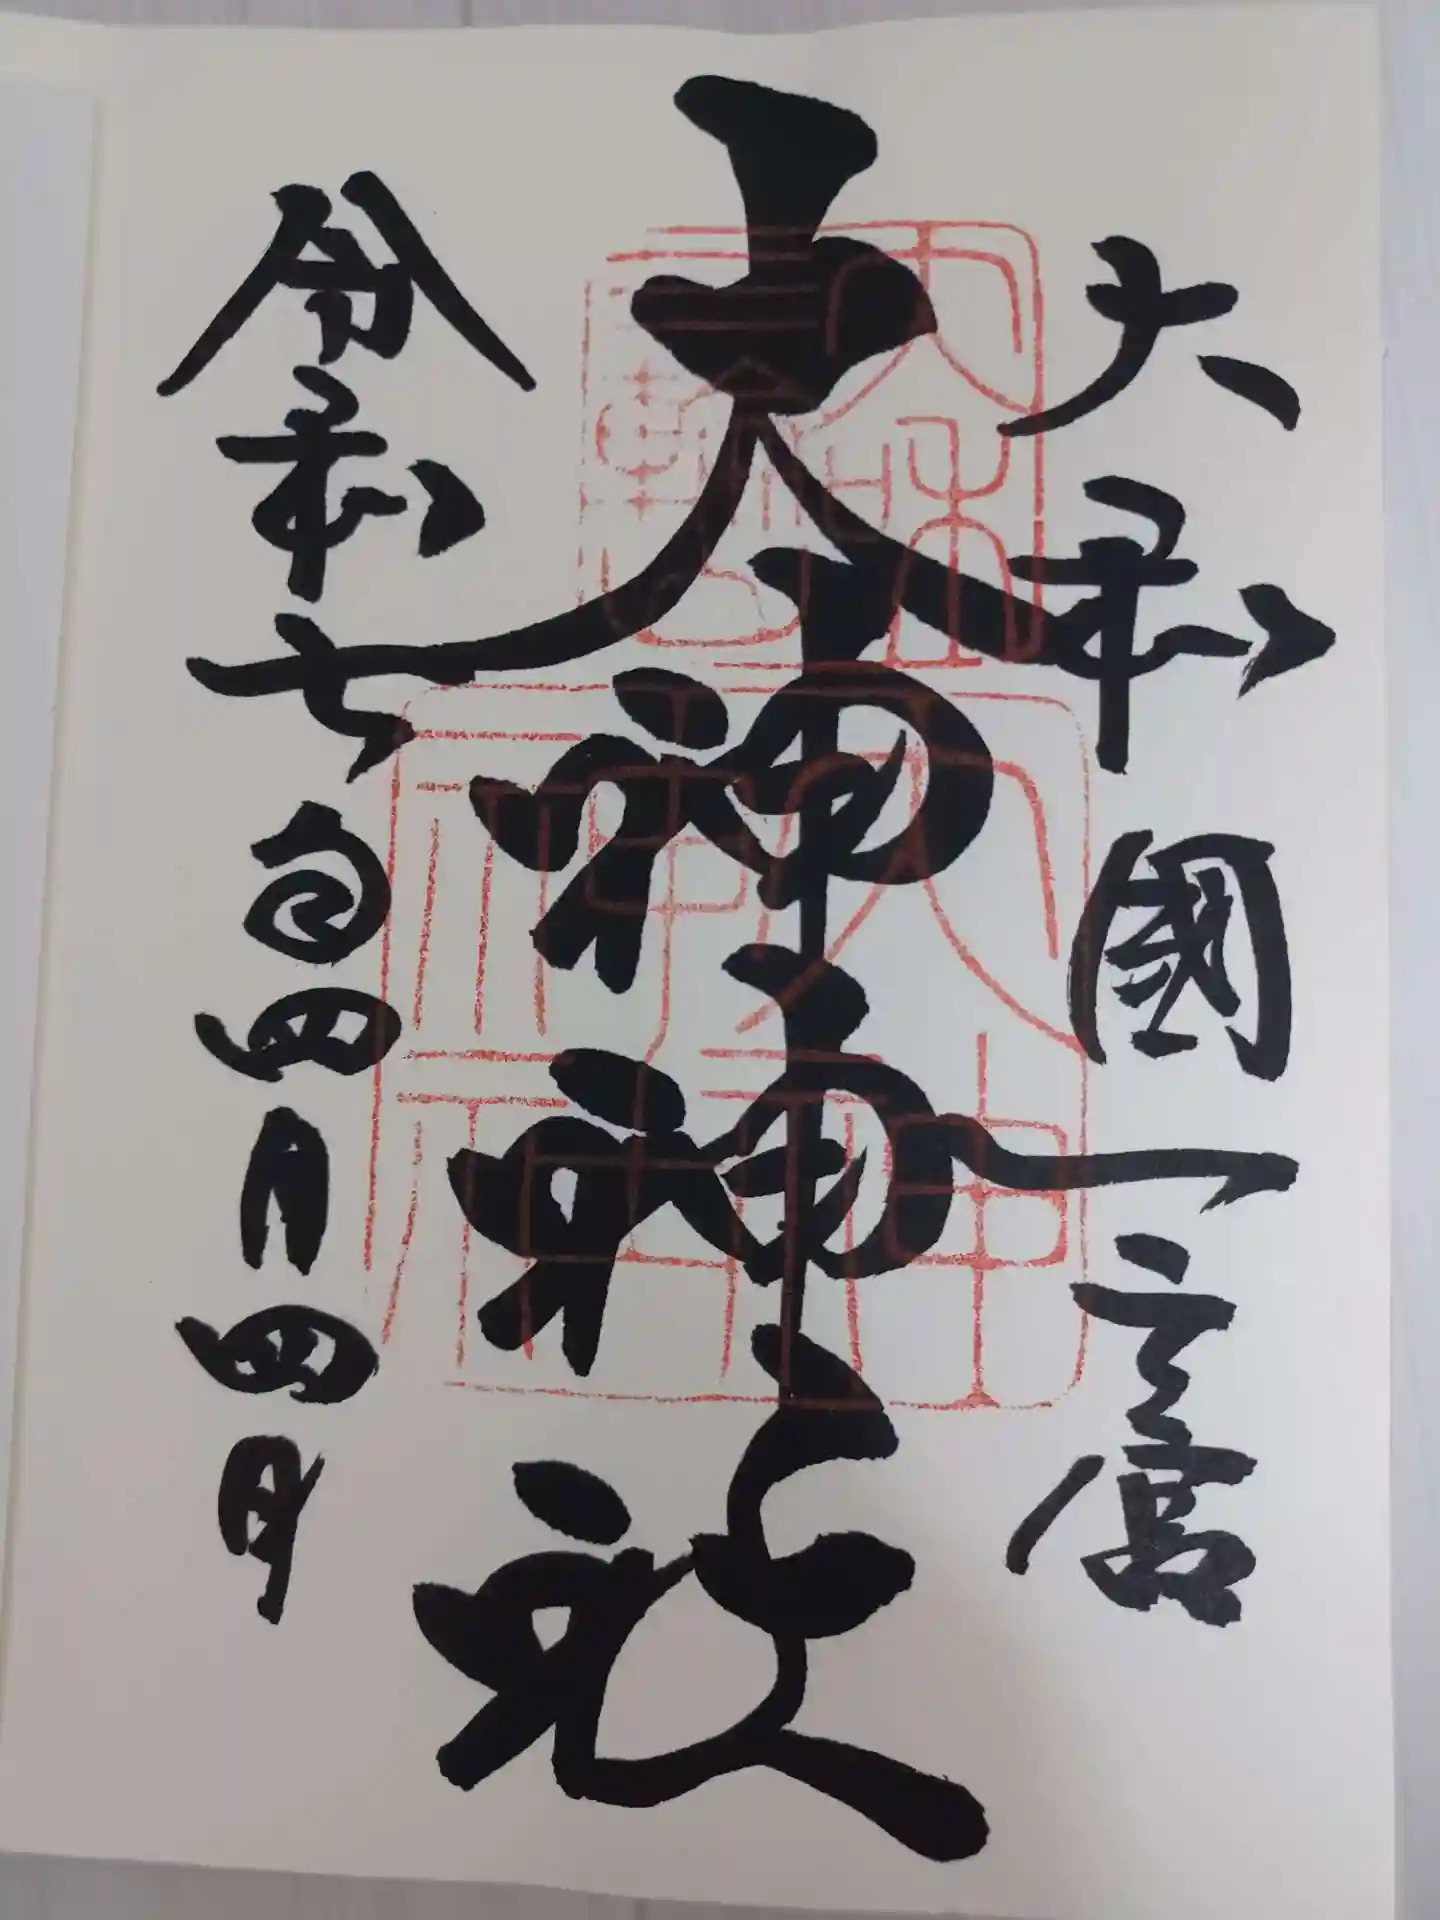 大和國一之宮
大神神社
令和七年四月四日